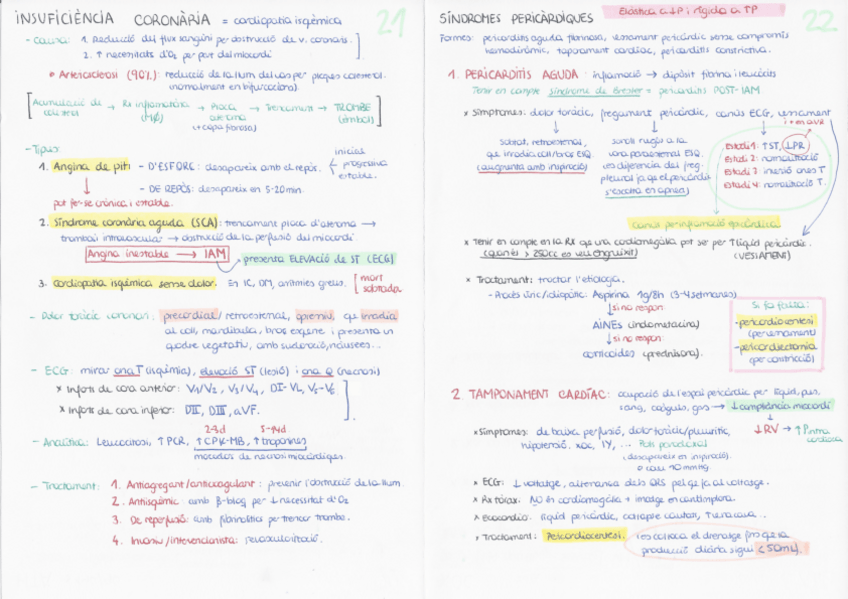 INSUFICIÈNCIA CORONÀRIA = cardiopatia isquèmica
21
- Causa: 1. Reducció del flux sanguini per obstrucció de v. coronaris.
2. ↑ necessitats d'O₂ per part del miocardi
* Arteriosclerosi (90%): reducció de la llum del vas per plaques colesterol.
(normalment en bifurcacions)
Acumulació de colesterol → Rx inflamatòria (MØ) → Placa ateroma (+ capa fibrosa) → Trencament → TROMBE (èmbols)
- Tipus:
1. Angina de pit: - D'ESFORÇ: desapareix amb el repòs.
inicial
progressiva
estable.
- DE REPÒS: desapareix en 5-20min.
pot fer-se crònica i estable.
2. Síndrome coronària aguda (SCA): trencament placa d'ateroma →
trombosi intravascular → obstrucció de la perfusió del miocardi.
Angina inestable → IAM
presenta ELEVACIÓ de ST (ECG)
3. Cardiopatia isquèmica sense dolor. En IC, DM, arítmies greus. [mort sobtada.
- Dolor toràcic coronari: precordial/retroesternal, opressiu, que irradia
al coll, mandíbula, braç esquerre i presenta un
quadre vegetatiu, amb sudoració, nàusees...
- ECG: mirar ona T (isquèmia), elevació ST (lesió) i ona Q (necrosi)
* Infarts de cara anterior: V1/V2, V3/V4, DI-VL, V5-V6
* Infarts de cara inferior: DII, DIII, aVF.
2-3d 5-14d
- Analítica: Leucocitosi, ↑PCR, ↑CPK-MB, ↑troponines
marcadors de necrosi miocàrdiques.
- Tractament: 1. Antiagregant/anticoagulant: prevenir l'obstrucció de la llum.
2. Antisquèmic: amb β-bloq per ↓ necessitat d'O₂
3. De reperfusió: amb fibrinolítics per trencar trombe.
4. Invasiu/intervencionista: revascularització.
SÍNDROMES PERICÀRDIQUES
Elàstica a ↓P i rígida a ↑P
22
Formes: pericarditis aguda fibrinosa, vessament pericàrdic sense compromís
hemodinàmic, taponament cardíac, pericarditis constrictiva.
1. PERICARDITIS AGUDA: inflamació → dipòsit fibrina i leucòcits
Tenir en compte síndrome de Dresler = pericarditis POST-IAM
* Símptomes: dolor toràcic, fregament pericàrdic, canvis ECG, vessament
sobtat, retroesternal,
que irradia coll/braç ESQ.
(augmenta amb inspiració)
soroll rugós a la
vora paraesternal ESQ.
es diferencia del freg.
pleural ja que el pericàrdic
s'escolta en apnea)
Estadi 1: ↑ST, ↓PR
Estadi 2: normalització
Estadi 3: inversió ones T
Estadi 4: normalització T.
Canvis per inflamació epicàrdica
* Tenir en compte en la RX que una cardiomegàlia pot ser per ↑líquid pericàrdic.
(quan hi > 250cc es veu engruixit)
(VESSAMENT)
* Tractament: tractar l'etiologia.
- Procés víric/idiopàtic: Aspirina 1g/8h (3-4 setmanes)
↓ si no respon:
AINEs (indometacina)
↓ si no respon:
corticoides (prednisona).
Si fa falta:
- pericardiocentesi
(per vessament)
- pericardiectomia
(per constricció)
2. TAMPONAMENT CARDÍAC: ocupació de l'espai pericàrdic per líquid, pus,
sang, coàguls, gas → ↓ compliància miocardi
↓RV → ↑P intra cardíaca
* Símptomes: de baixa perfusió, dolor toràcic/pleurític,
hipotensió, xoc, IY, ... Pols paradoxal
(desapareix en inspiració)
o cau 10mmHg.
* ECG: ↓ voltatge, alternança dels QRS pel que fa al voltatge.
* Rx tòrax: NO és cardiomegàlia + imatge en cantimplora.
* Ecocardio: líquid pericàrdic, col·lapse cavitari,
* Tractament: Pericardiocentesi. (es col·loca el drenatge fins que la
producció diària sigui < 50mL).